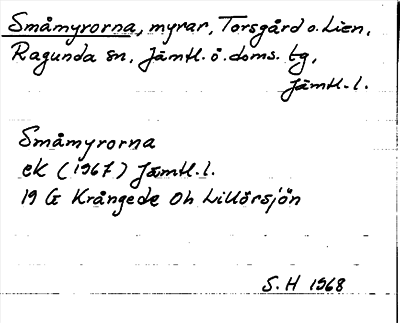 Småmyrorna, myrar, Torsgård o. Lien,
Ragunda sn, Jämtl. ö. doms. tg,
Jämtl. l.
Småmyrorna
ek (1967) Jämtl. l.
19 G Krångede Oh Lillörsjön
S. H 1968